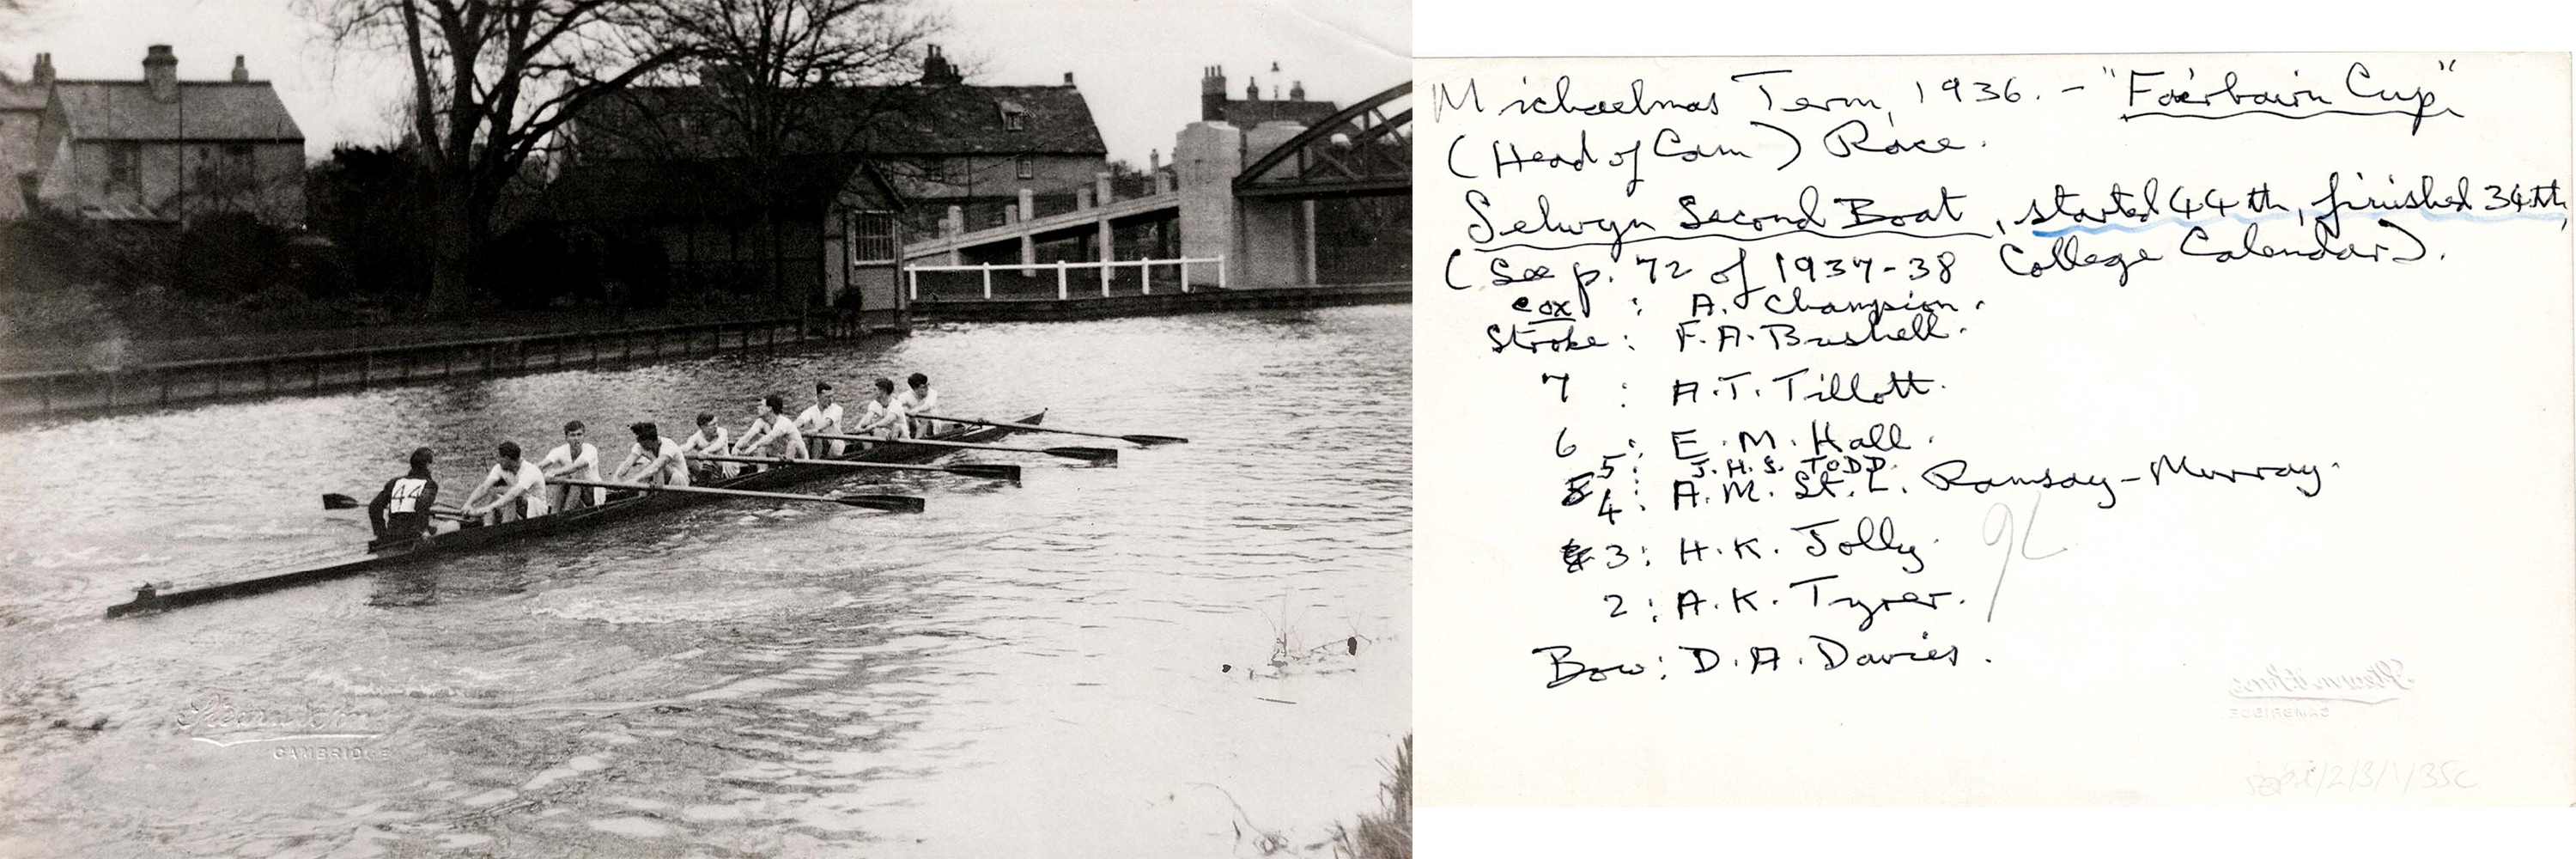 44
Stearn & Sons
CAMBRIDGE
Michaelmas Term, 1936. - "Fairbairn Cup"
(Head of Cam) Race.
Selwyn Second Boat, started 44th, finished 34th,
(See p. 72 of 1937-38 College Calendar).
cox : A. Champion.
Stroke : F. A. Bushell.
7 : A. T. Tillott.
6 : E. M. Hall.
5 : J. H. S. TODD.
4 : A. M. St. L. Ramsay-Murray.
3 : H. K. Jolly.
2 : A. K. Tyrer.
Bow : D. A. Davies.
Stearn & Sons
CAMBRIDGE